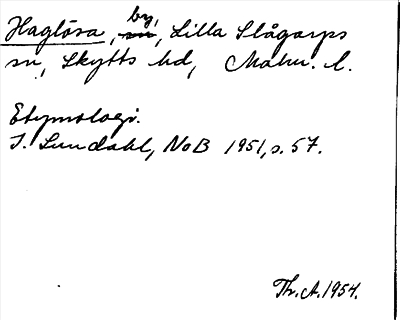 Haglösa, by, Lilla Slågarps
sn, Skytts hd, Malm. l.
Etymologi.
I. Lundahl, NoB 1951, s. 57.
Th. A. 1954.